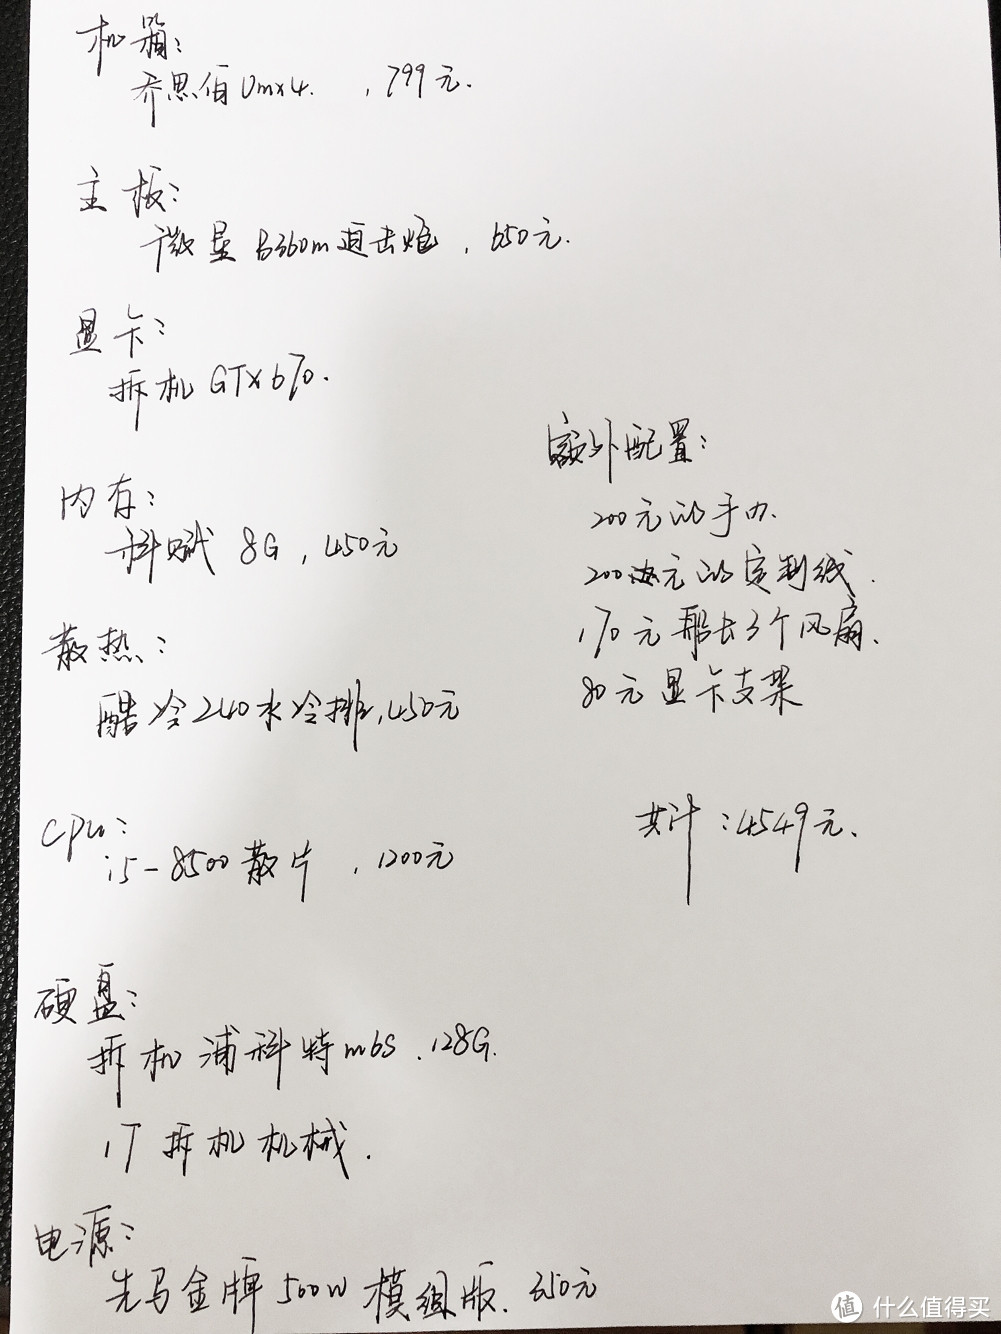 机箱：
乔思伯Umx4. ，799元.
主板：
微星B360m迫击炮，650元.
显卡：
拆机GTX670.
内存：
科赋 8G，450元
散热：
酷冷240水冷排，450元
cpu：
i5-8500散片，1200元
硬盘：
拆机浦科特m6s.128G.
1T拆机机械.
电源：
先马金牌500W模组版.350元
额外配置：
200元的手办.
200元的定制线.
170元 3个风扇.
80元显卡支架
共计：4549元.
值 什么值得买